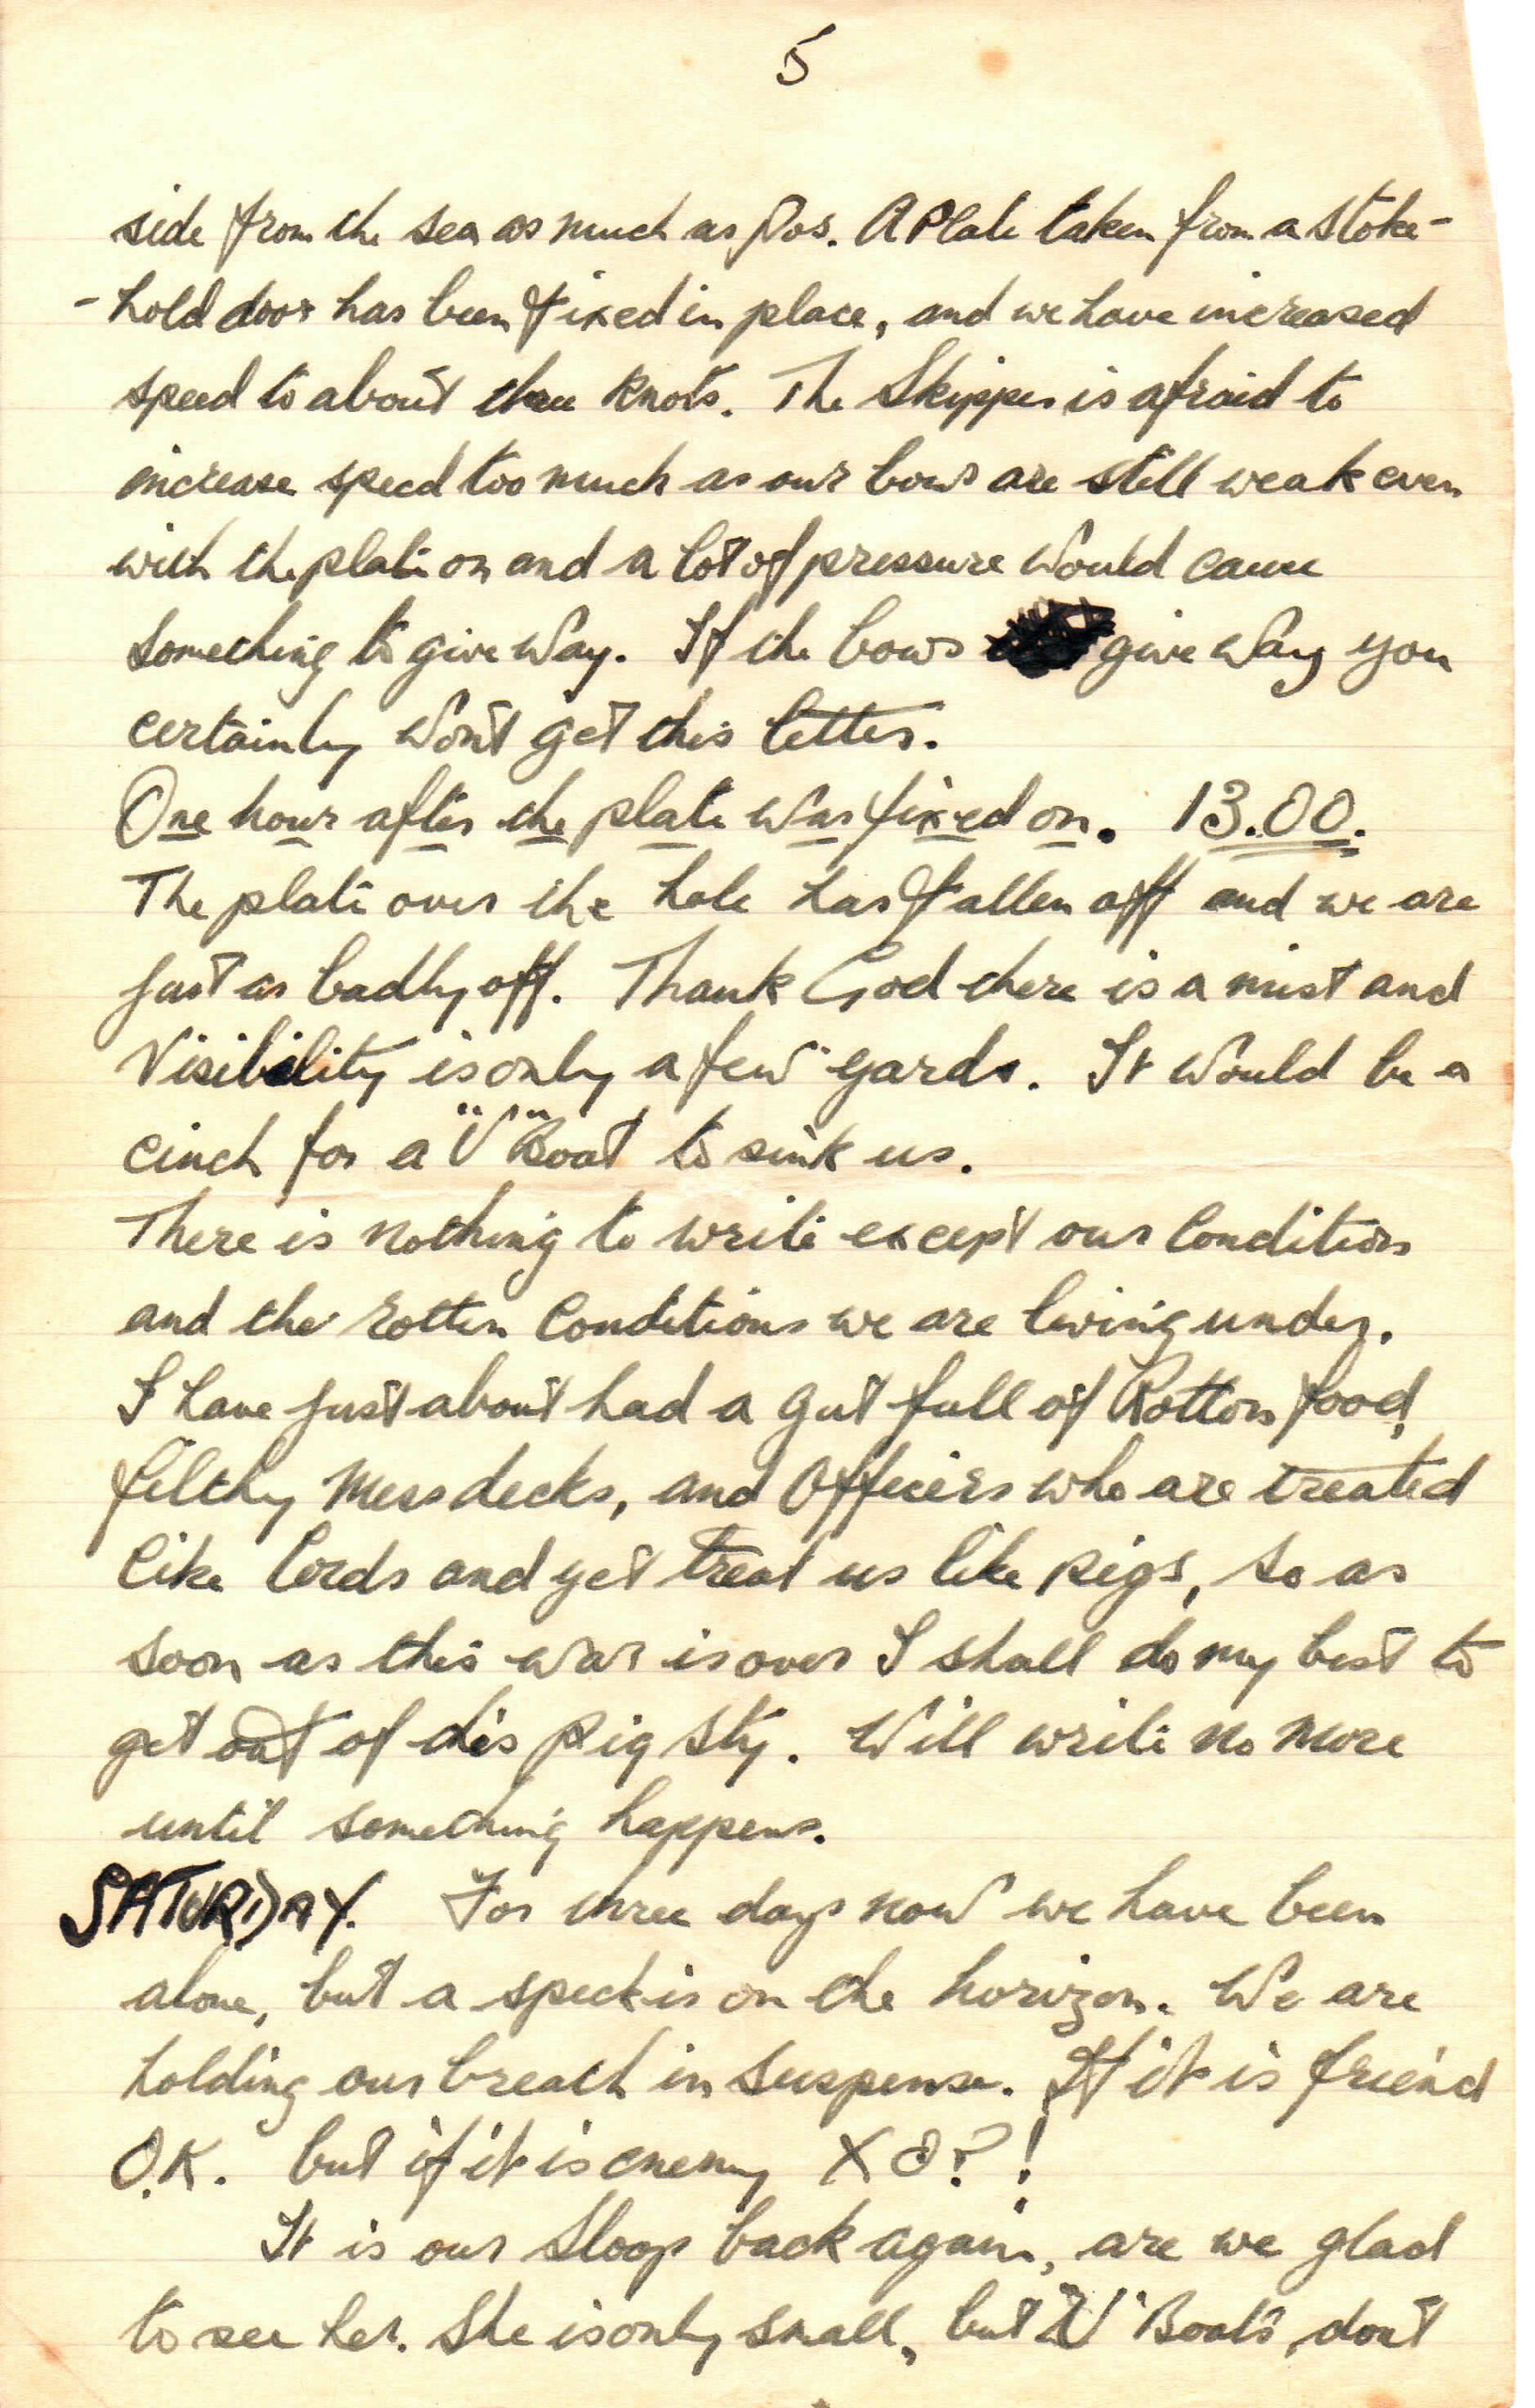 5
side from the sea as much as pos. A Plate taken from a stoke-
-hold door has been fixed in place, and we have increased
speed to about three Knots. The Skipper is afraid to
increase speed too much as our bows are still weak even
with the plate on and a lot of pressure Would cause
something to give Way. If the bows give Way you
certainly Won't get this letter.
One hour after the plate Was fixed on. 13.00.
The plate over the hole has fallen off and we are
just as badly off. Thank God there is a mist and
Visibility is only a few yards. It Would be a
cinch for a "U" Boat to sink us.
There is nothing to write except our Condition
and the rotten Conditions we are living under.
I have just about had a gut full of Rotton food,
filthy Messdecks, and Officers who are treated
like lords and yet treat us like pigs, so as
soon as this war is over I shall do my best to
get out of this Pig Sty. Will write no more
until something happens.
SATURDAY. For three days now we have been
alone, but a speck is on the horizon. We are
holding our breath in suspense. If it is friend
O.K. but if it is enemy X O ? !
It is our Sloop back again, are we glad
to see her. She is only small, but "U" Boats don't